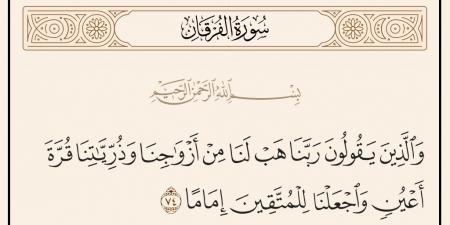 سُورَةُ الْفُرْقَانِ
بِسْمِ اللَّهِ الرَّحْمَٰنِ الرَّحِيمِ
وَالَّذِينَ يَقُولُونَ رَبَّنَا هَبْ لَنَا مِنْ أَزْوَاجِنَا وَذُرِّيَّاتِنَا قُرَّةَ
أَعْيُنٍ وَاجْعَلْنَا لِلْمُتَّقِينَ إِمَامًا ٧٤